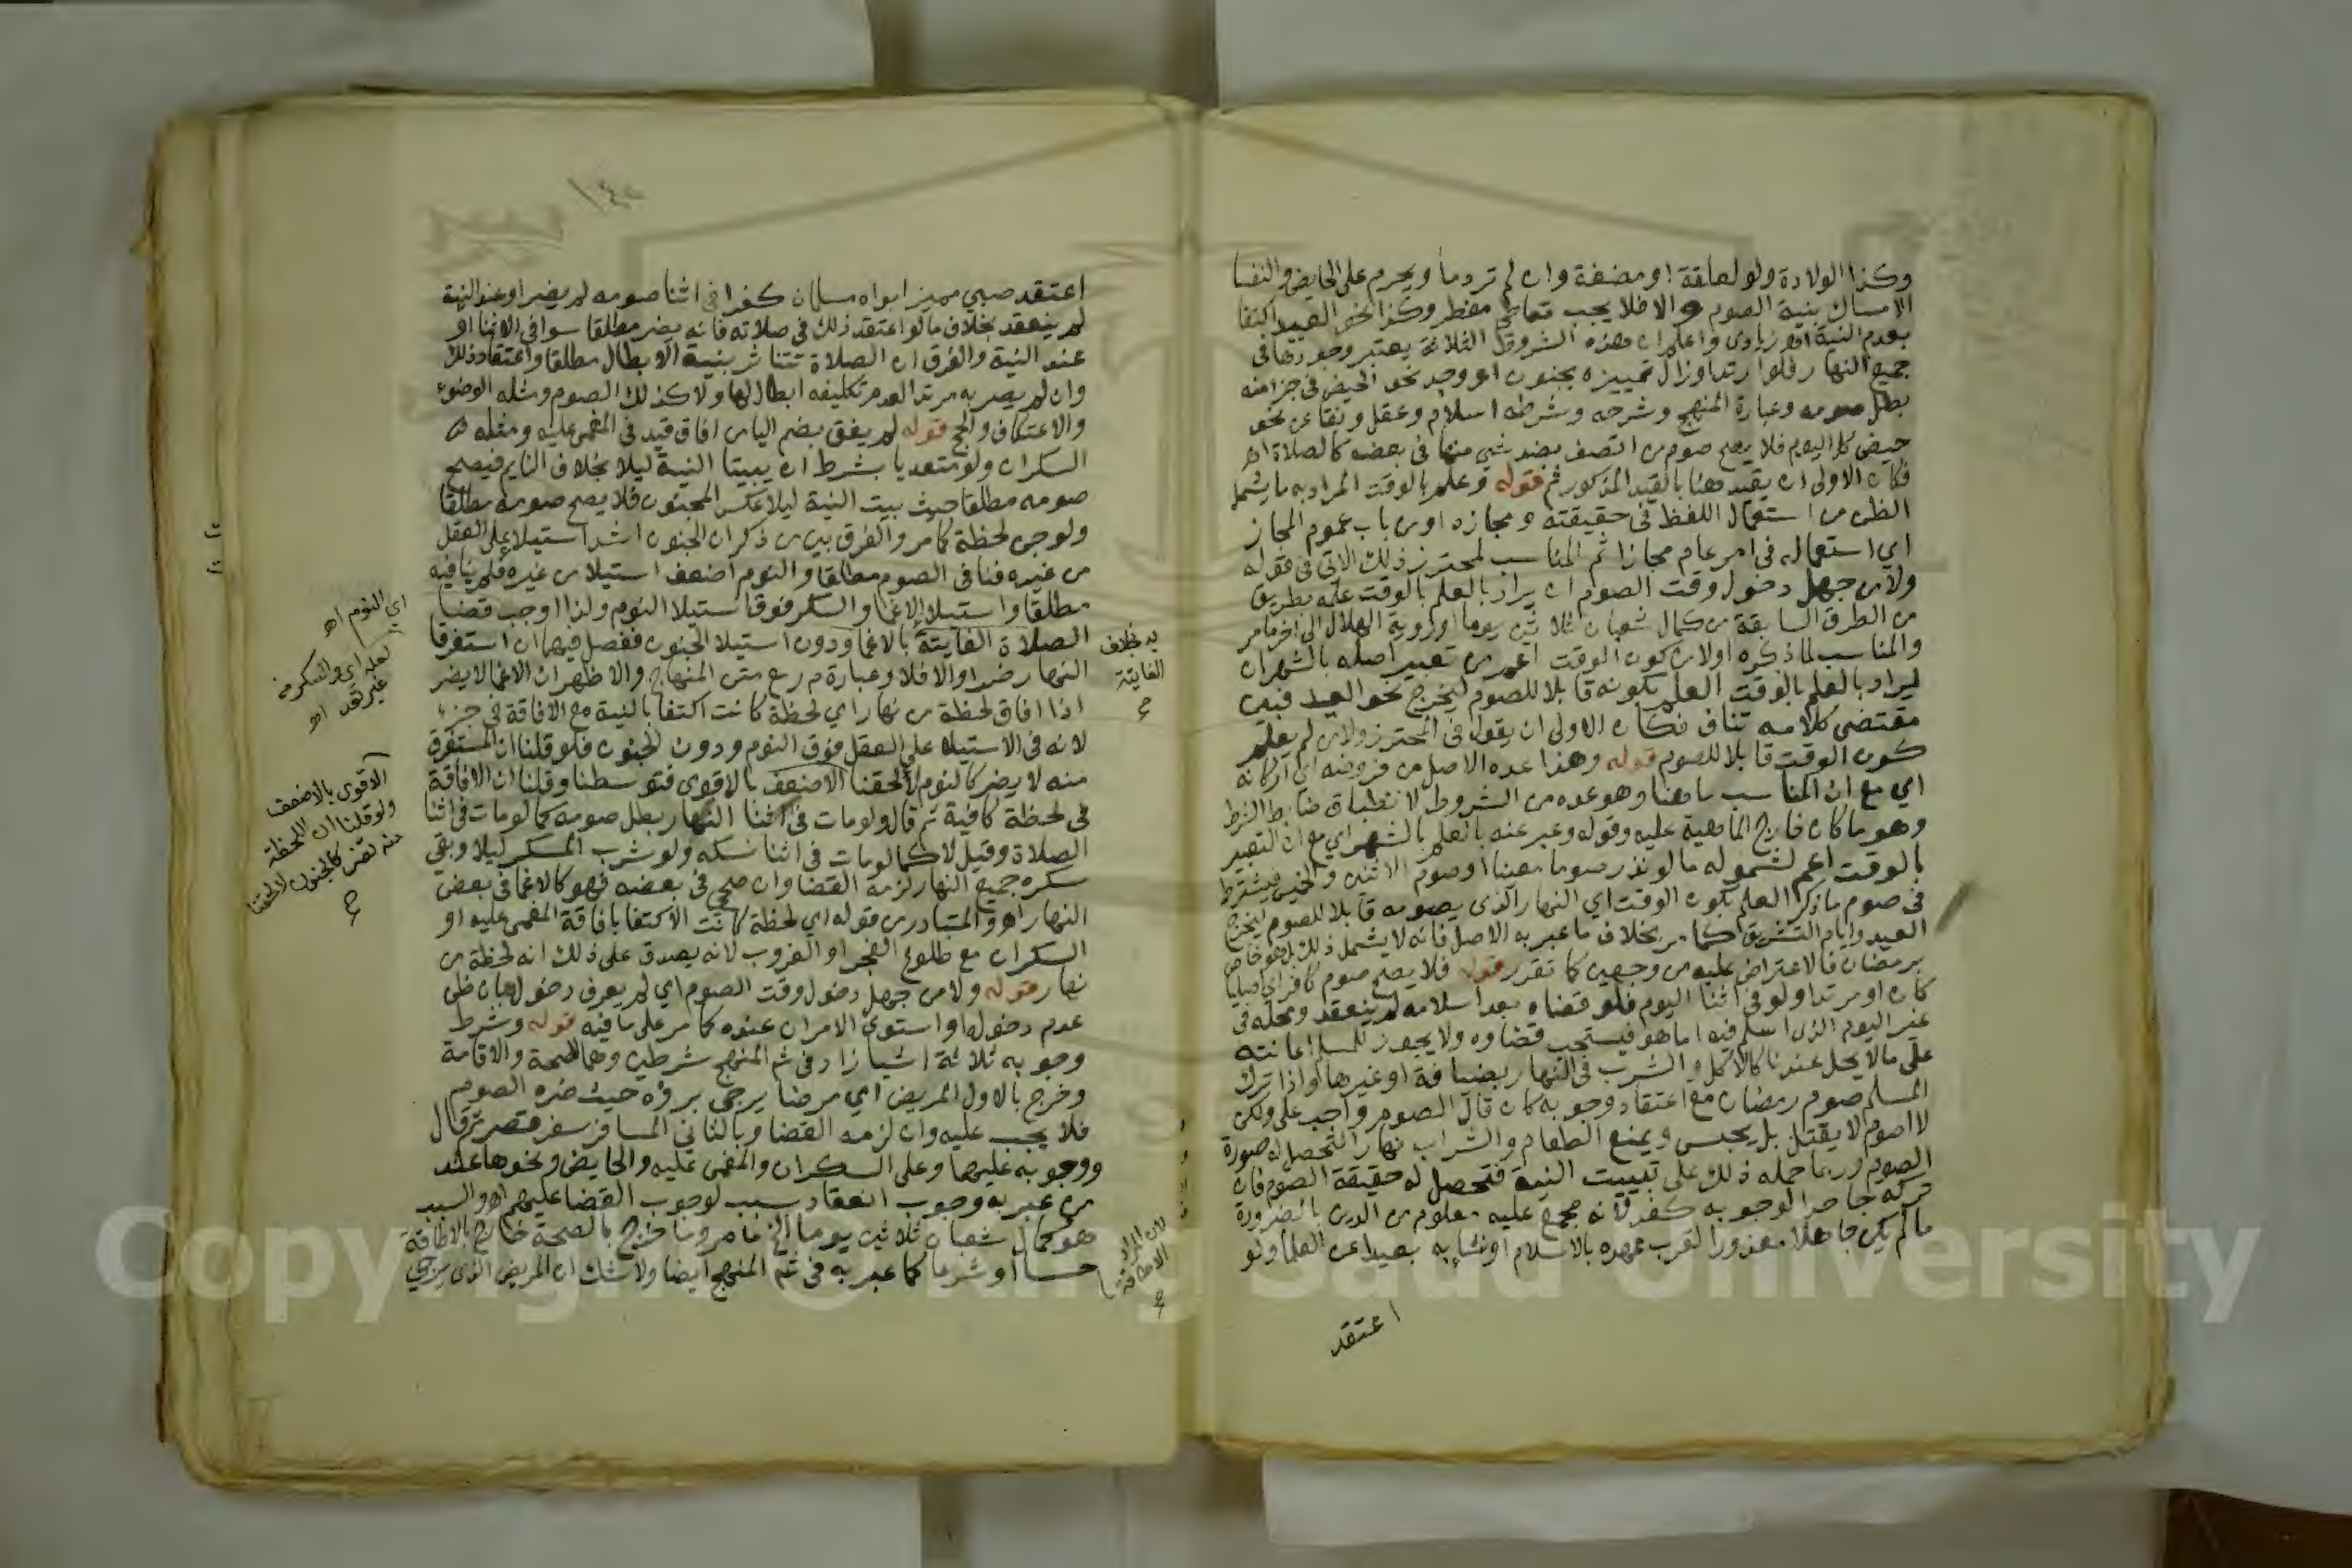 وكذا الولادة ولو لعلقة او مضغة وان لم تر دما ويحرم على الحايض والنفسا
الامساك بنية الصوم والا فلا يجب تعاطي مفطر وكذا نحو العيد اكتفا
بعدم النية اهر زيادي واعلم ان هذه الشروط الثلاثة يعتبر وجودها في
جميع النهار فلو ارتد او زال تمييزه بجنون او وجد نحو الحيض في جزا منه
بطل صومه وعبارة المنهج وشرحه وشرطه اسلام وعقل ونقا عن نحو
حيض كل اليوم فلا يصح صوم من اتصف بضد شي منها في بعضه كالصلاة اه
فكان الاولى ان يقيد هنا بالقيد المذكور ثم قوله وعلم بالوقت المراد به ما يشمل
الظن من استعمال اللفظ في حقيقته ومجازه او من باب عموم المجاز
اي استعماله في امر عام مجازا ثم المناسب لمحترز ذلك الاتي في قوله
ولا من جهل دخول وقت الصوم ان يراد بالعلم بالوقت علمه بطريق
من الطرق السابقة من كمال شعبان ثلاثين يوما او روية الهلال الى اخر ما مر
والمناسب لما ذكره اولا من كون الوقت اعم من تعبير اصله بالشهر ان
يراد بالعلم بالوقت العلم بكونه قابلا للصوم ليخرج نحو العيد فبين
مقتضى كلامه تناف فكان الاولى ان يقول في المحترز ولا من لم يعلم
كون الوقت قابلا للصوم قوله وهذا عده الاصل من فروضه اي اركانه
اي مع ان المناسب ما هنا وهو عده من الشروط لانطباق ضابط الشرط
وهو ما كان خارج الماهية عليه وقوله وعبر عنه بالعلم بالشهر اي مع ان التعبير
بالوقت اعم لشموله ما لو نذر صوما معينا او صوم الاثنين والخميس فيشترط
في صوم ما ذكر العلم بكون الوقت اي النهار الذي يصومه قابلا للصوم ليخرج
العيد وايام التشريق كما مر بخلاف ما عبر به الاصل فانه لا يشمل ذلك بل هو خاص
برمضان فالاعتراض عليه من وجهين كما تقرر قوله فلا يصح صوم كافر اي اصليا
كان او مرتدا ولو في اثنا اليوم فلو قضاه بعد اسلامه لم ينعقد ومحله في
غير اليوم الذي اسلم فيه اما هو فيستحب قضاوه ولا يجوز للمسلم اعانته
على ما لا يحل عندنا كالاكل والشرب في النهار بضيافة او غيرها واذا ترك
المسلم صوم رمضان مع اعتقاد وجوبه كان قال الصوم واجب علي ولكن
لا اصوم لا يقتل بل يحبس ويمنع الطعام والشراب نهارا لتحصل له صورة
الصوم وربما حمله ذلك على تبييت النية فتحصل له حقيقة الصوم فان
تركه جاحدا لوجوبه كفر لانه مجمع عليه معلوم من الدين بالضرورة
ما لم يكن جاهلا معذورا لقرب عهده بالاسلام او نشا به بعيدا عن العلما ولو
اعتقد
اعتقد صبي مميز ابواه مسلمان كفرا في اثنا صومه لم يضر او عند النية
لم ينعقد بخلاف ما لو اعتقد ذلك في صلاته فانه يضر مطلقا سوا في الاثنا او
عند النية والفرق ان الصلاة تتاثر بنية الابطال مطلقا واعتقاد ذلك
وان لم يصر به مرتدا لعدم تكليفه ابطال لها ولا كذلك الصوم ومثله الوضوء
والاعتكاف والحج قوله لم يفق بضم اليا من افاق قيد في المغمى عليه ومثله
السكران ولو متعديا بشرط ان يبيتا النية ليلا بخلاف النايم فيصح
صومه مطلقا حيث بيت النية ليلا عكس المجنون فلا يصح صومه مطلقا
ولو جن لحظة كما مر والفرق بين من ذكر ان الجنون اشد استيلا على العقل
من غيره فنافى الصوم مطلقا والنوم اضعف استيلا من غيره فلم ينافيه
مطلقا واستيلا الاغما والسكر فوق استيلا النوم ولذا اوجب قضا
الصلاة الفايتة بالاغما ودون استيلا الجنون ففصل فيهما ان استغرقا
النهار ضرا والا فلا وعبارة م ر مع متن المنهاج والاظهر ان الاغما لا يضر
اذا افاق لحظة من نهار اي لحظة كانت اكتفا بالنية مع الافاقة في جزء
لانه في الاستيلا على العقل فوق النوم ودون الجنون فلو قلنا ان المستغرق
منه لا يضر كالنوم لالحقنا الاضعف بالاقوى فتوسطنا وقلنا ان الافاقة
في لحظة كافية ثم قال ولو مات في اثنا النهار بطل صومه كما لو مات في اثنا
الصلاة وقيل لا كما لو مات في اثنا نسكه ولو شرب المسكر ليلا وبقي
سكره جميع النهار لزمه القضا وان صحى في بعضه فهو كالاغما في بعض
النهار اه والمتبادر من قوله اي لحظة كانت الاكتفا بافاقة المغمى عليه او
السكران مع طلوع الفجر او الغروب لانه يصدق على ذلك انه لحظة من
نهار قوله ولا من جهل دخول وقت الصوم اي لم يعرف دخوله بان ظن
عدم دخوله او استوى الامران عنده كما مر على ما فيه قوله وشرط
وجوبه ثلاثة اشيا زاد في ثم المنهج شرطين وهما الصحة والاقامة
وخرج بالاول المريض اي مرضا يرجى برؤه حيث ضره الصوم
فلا يجب عليه وان لزمه القضا وبالثاني المسافر سفر قصر ثم قال
ووجوبه عليهما وعلى السكران والمغمى عليه والحايض ونحوها عند
من عبر به وجوب انعقاد سبب لوجوب القضا عليهم اه والسبب
هو كمال شعبان ثلاثين يوما الخ ما مر وما خرج بالصحة خارج بالاطاقة
حسا او شرعا كما عبر به في ثم المنهج ايضا ولا شك ان المريض الذي يرجى
به بخلاف
الفايتة
لان المراد
الاطاقة
اي النوم اه
لعله اي والسكر منه
غير تعد اه
الاقوى بالاضعف
ولو قلنا ان اللحظة
منه تضر كالجنون لالحقنا
Copyright © King Saud University